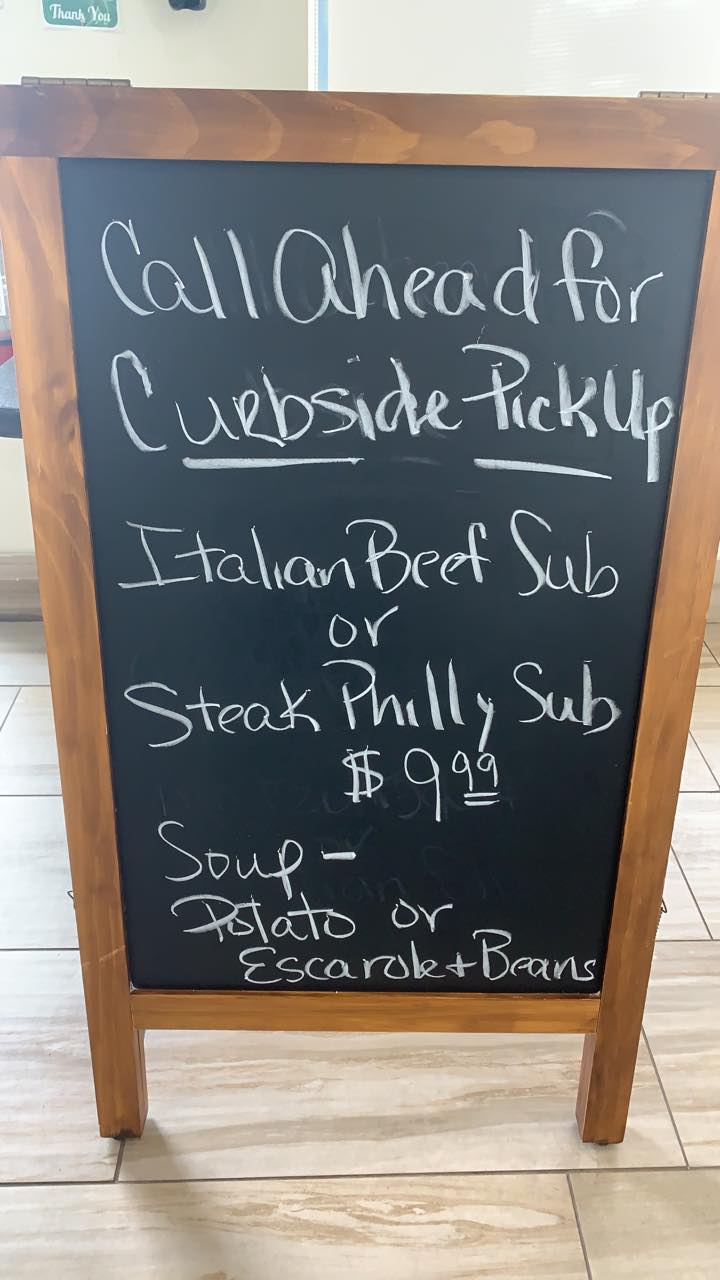 Thank You
Call Ahead for
Curbside PickUp
Italian Beef Sub
or
Steak Philly Sub
$9.99
Soup -
Potato or
Escarole + Beans